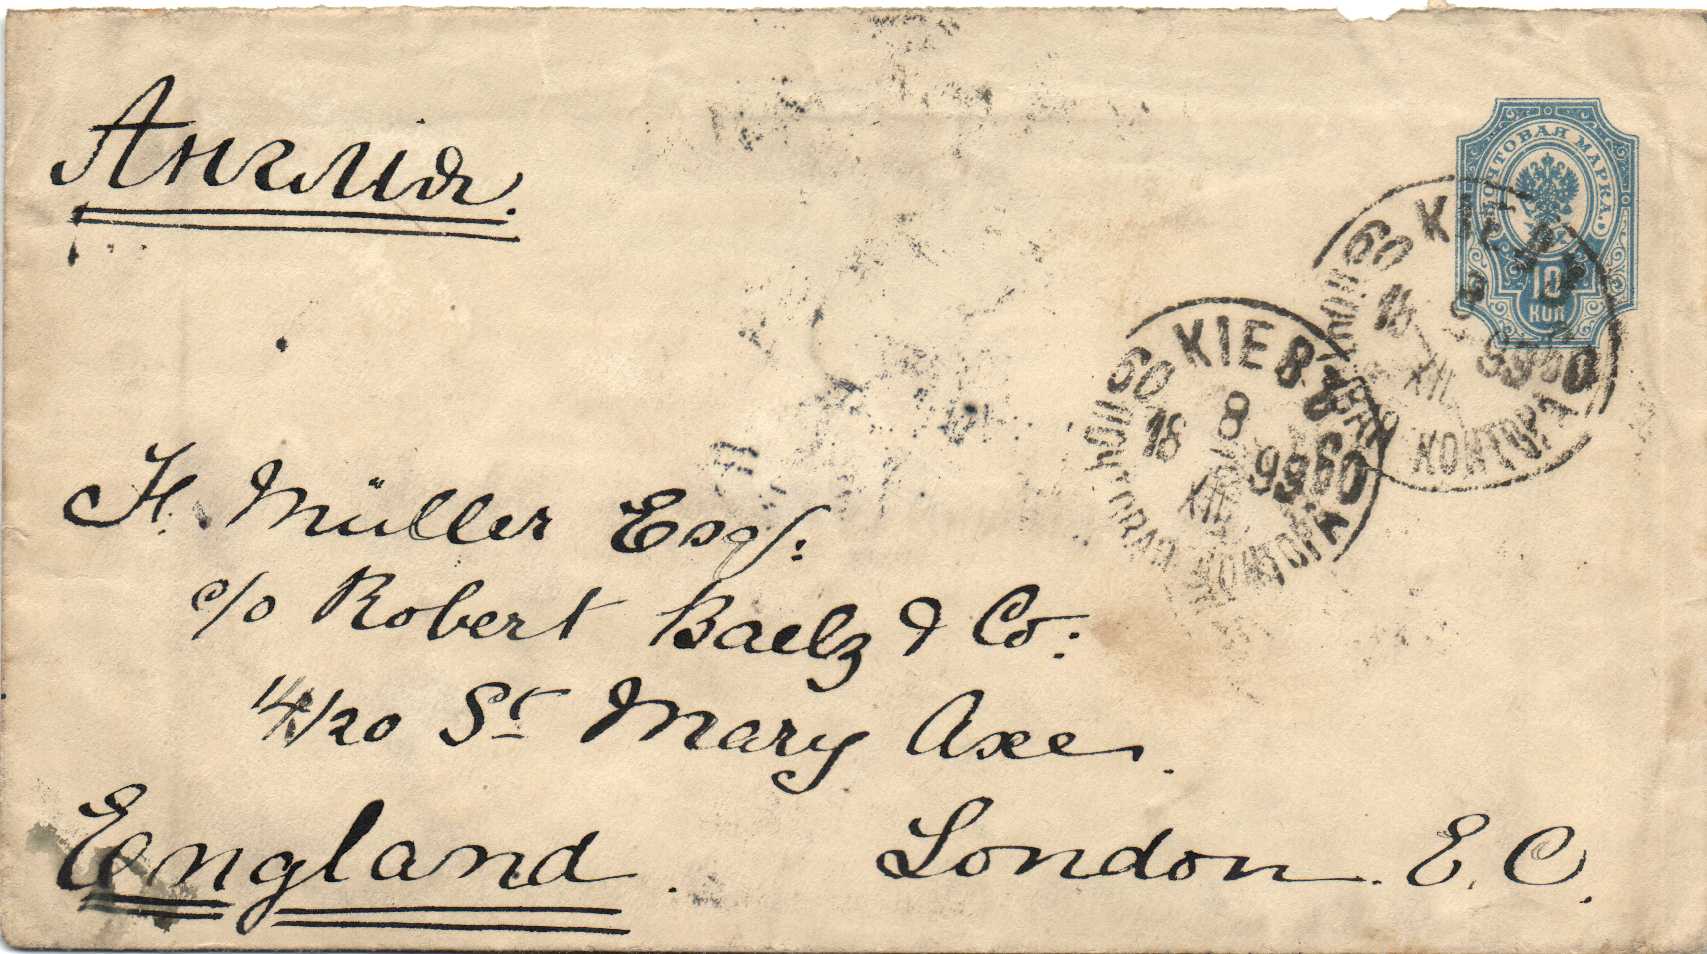 Англія.
ПОЧТОВАЯ МАРКА.
10
КОП
60 КІЕВЪ 60
18 8 99
XII
ПОЧТОВАЯ КОНТОРА
60 КІЕВЪ 60
18 8 99
XII
ПОЧТОВАЯ КОНТОРА
H. Müller Esq:
c/o Robert Baelz & Co:
14/20 St Mary Axe.
England. London. E. C.